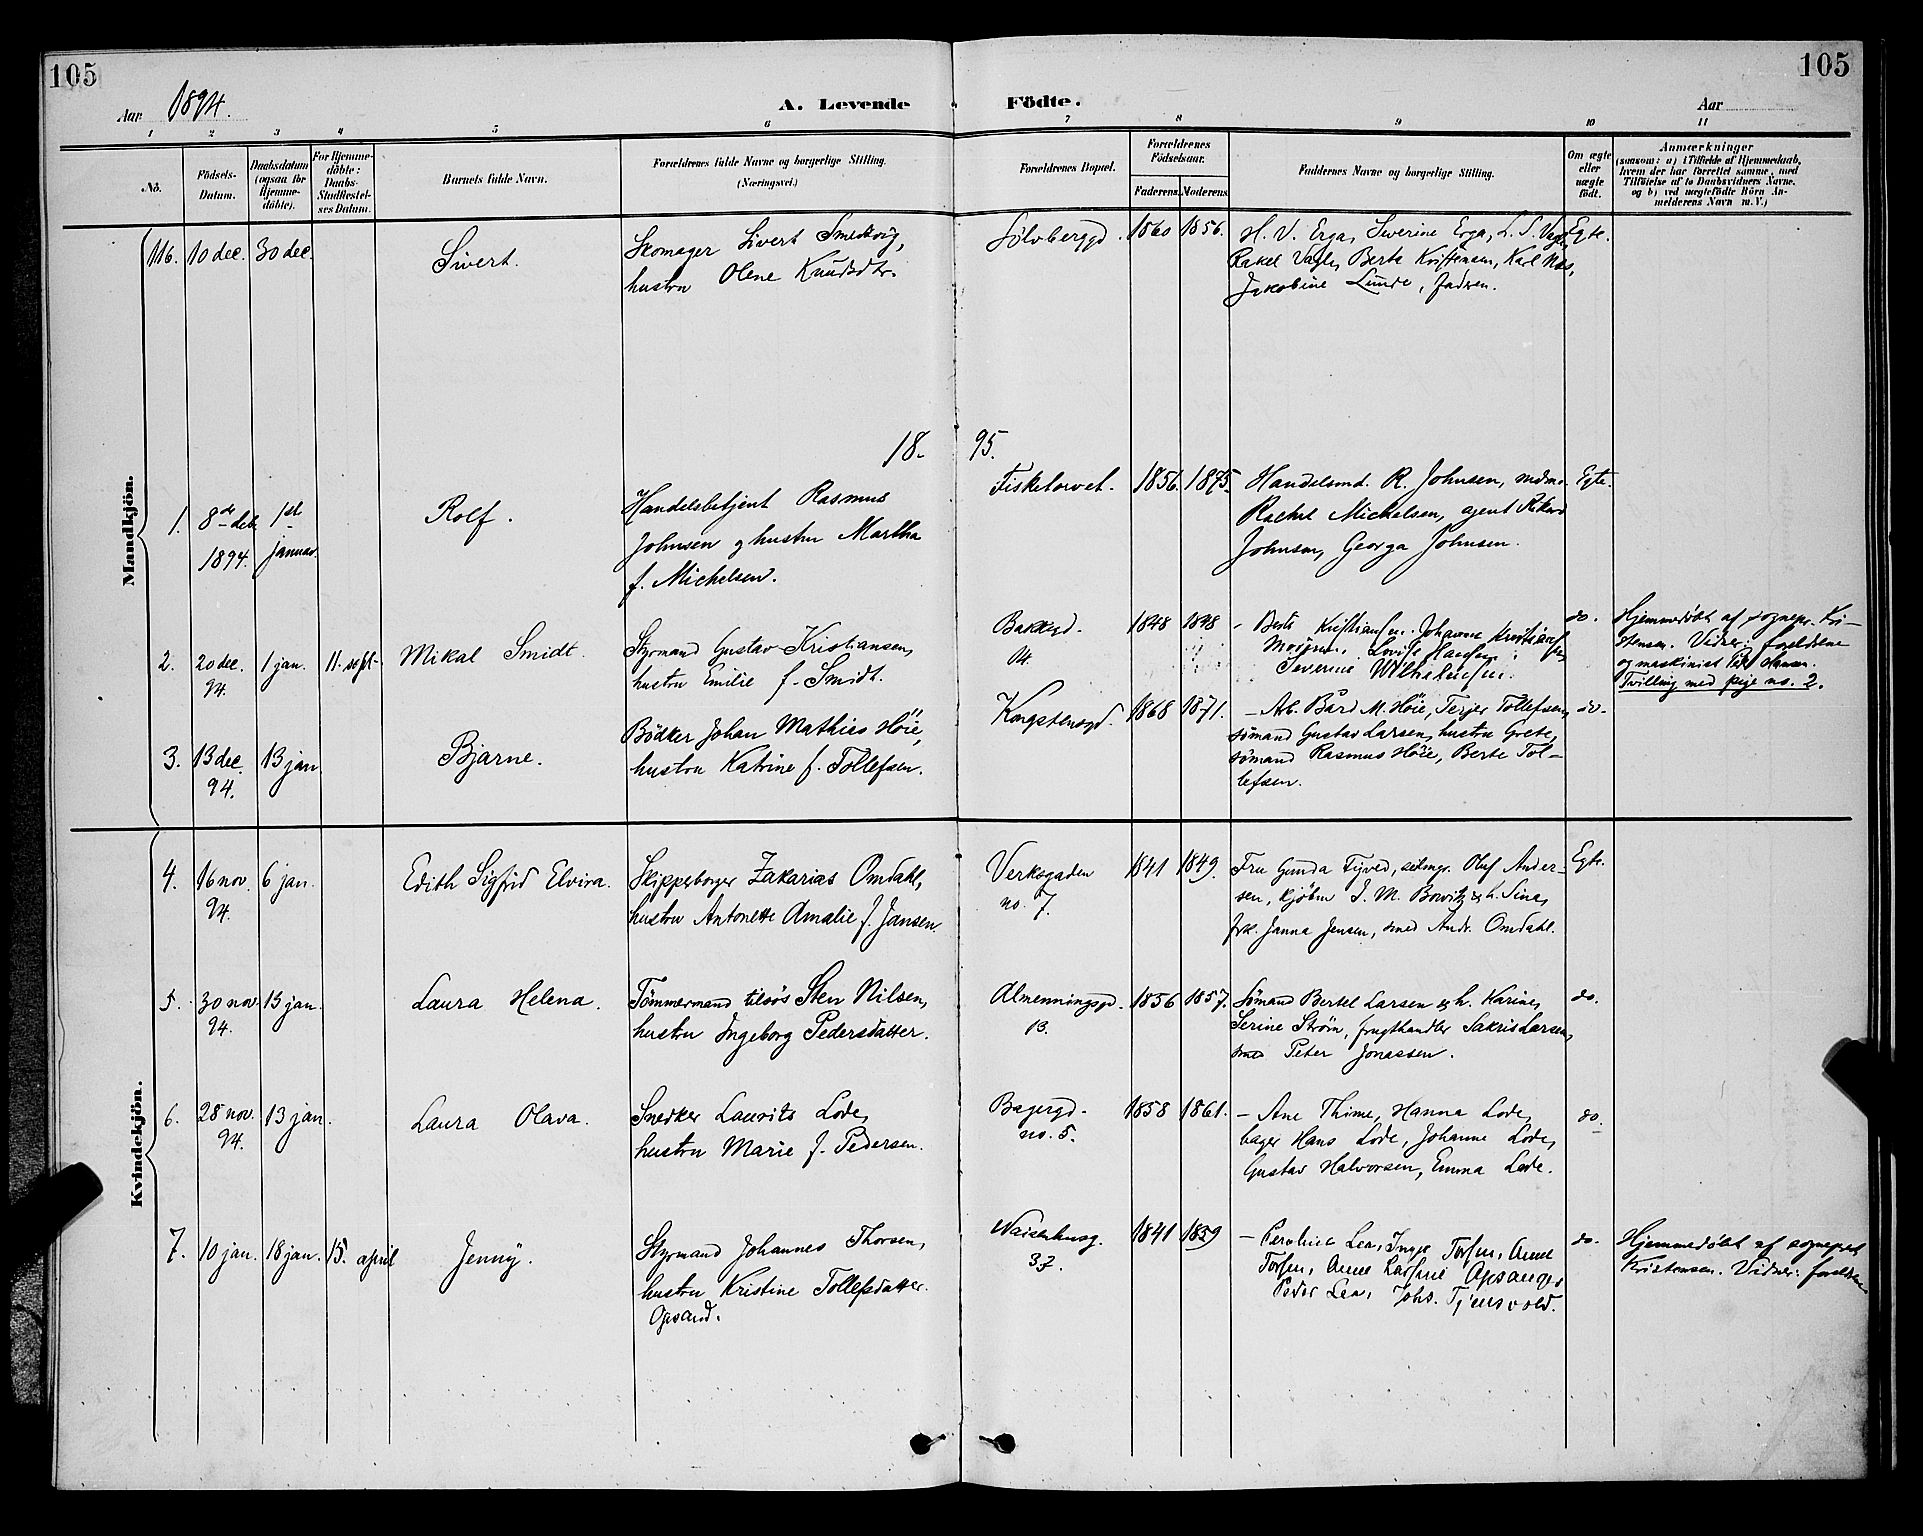 105
105
Aar 1894.
A. Levende
Födte.
Aar
1 2 3 4 5 6 7 8 9 10 11
No.
Födsels-
Datum.
Daabsdatum
(ogsaa for
Hjemme-
döbte).
For Hjemme-
döbte:
Daabs-
Stadfæstel-
ses Datum.
Barnets fulde Navn.
Forældrenes fulde Navne og borgerlige Stilling.
(Næringsvei.)
Forældrenes Bopæl.
Forældrenes
Födselsaar.
Faderens. Moderens.
Faddernes Navne og borgerlige Stilling.
Om ægte
eller
uægte
födt.
Anmærkninger
(saasom: a) i Tilfælde af Hjemmedaab,
hvem der har forrettet samme, med
Tilföielse af to Daabsvidners Navne,
og b) ved uægtefödte Börn An-
melderens Navn m. V.)
Mandkjön.
116. 10 dec. 30 dec.
Sivert.
Skomager Sivert Smedsvig,
hustru Olene Knudsdtr.
Sølvberggd. 1860 1856.
H. V. Erga, Severine Erga, L. S. Vagle,
Rakel Vagle, Berte Kristensen, Karl Næs,
Jakobine Lunde, faderen.
Egte.
18-95.
1. 8de dec. 1st
1894. januar
Rolf.
Handelsbetjent Rasmus
Johnsen og hustru Martha
f. Michelsen.
Fisketorvet. 1856. 1875.
Handelsmd. R. Johnsen, madm.
Rachel Michelsen, agent
Johnsen, Georga Johnsen.
Egte.
2. 20 dec. 1 jan. 11. sept.
94.
Mikal Smidt.
Styrmand Gustav Kristiansen,
hustru Emilie f. Smidt.
Bakkegd.
14.
1848
Kristiansen, Johanne Kristiansen,
Lovise Hansen,
Severine Wilhelmsen.
do.
Hjemmedøbt af sognepr. Kri-
stensen. Vidner: forældrene
og maskinist Hansen.
Tvilling med pige no. 2.
3. 13 dec. 13 jan
94.
Bjarne.
Bødker Johan Mathias Höie,
hustru Katrine f. Tollefsen.
Kongstensgd. 1868 1871.
- Arb. Bård M. Höie, Terjer Tollefsen,
sømand Gustav Larsen, hustru Grete,
sømand Rasmus Höie, Berte Tol-
lefsen.
do.
Kvindekjön.
4. 16 nov. 6 jan.
94.
Edith Sigfrid Elvira.
Skipperborger Zakarias Omdahl,
hustru Antonette Amalie f. Jansen.
Verksgaden
no. 7.
1841 1849.
Fru Gunda Tyved, Oluf Ander-
sen, kjøbm I. M. Bowitz & h. Sina,
frk. Janna Jensen, smed Andr. Omdahl.
Egte.
5. 30 nov. 13 jan.
94.
Laura Helena.
Tömmermand tilsøs Sten Nilsen,
hustru Ingeborg Pedersdatter.
Almenningsgd.
13.
1856 1857.
Sømand Bertel Larsen & h. Karine,
Serine Strøm, frugthandler Sakris Larsen,
smed Peter Jonassen.
do.
6. 28 nov. 13 jan.
94.
Laura Olava.
Snedker Laurits Lode,
hustru Marie f. Pedersen.
Bagergd.
no. 5.
1858 1861.
- Ane Thime, Hanna Lode,
bager Hans Lode, Johanne Lode,
Gustav Halvorsen, Emma Lode.
do.
7. 10 jan. 18 jan. 15. april
Jenny.
Styrmand Johannes Thorsen,
hustru Kristine Tollefsdatter
Opsand.
Waisenhusg.
37.
1841 1859
Lea, Inge Torsen, Anne
Torsen, Anne
Peder Lea, Johs. Tjensvold.
do.
Hjemmedøbt af sognepræst
Kristensen. Vidner: forældrene